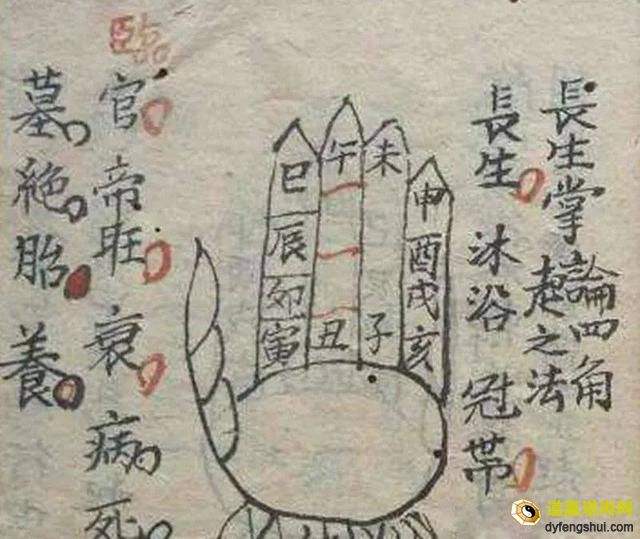 長生掌
論四角
起之法
長生 沐浴 冠帶
申酉戌亥
未 子
午 丑
巳辰卯寅
臨官 帝旺 衰 病 死
墓 絶 胎 養
dyfengshui.com